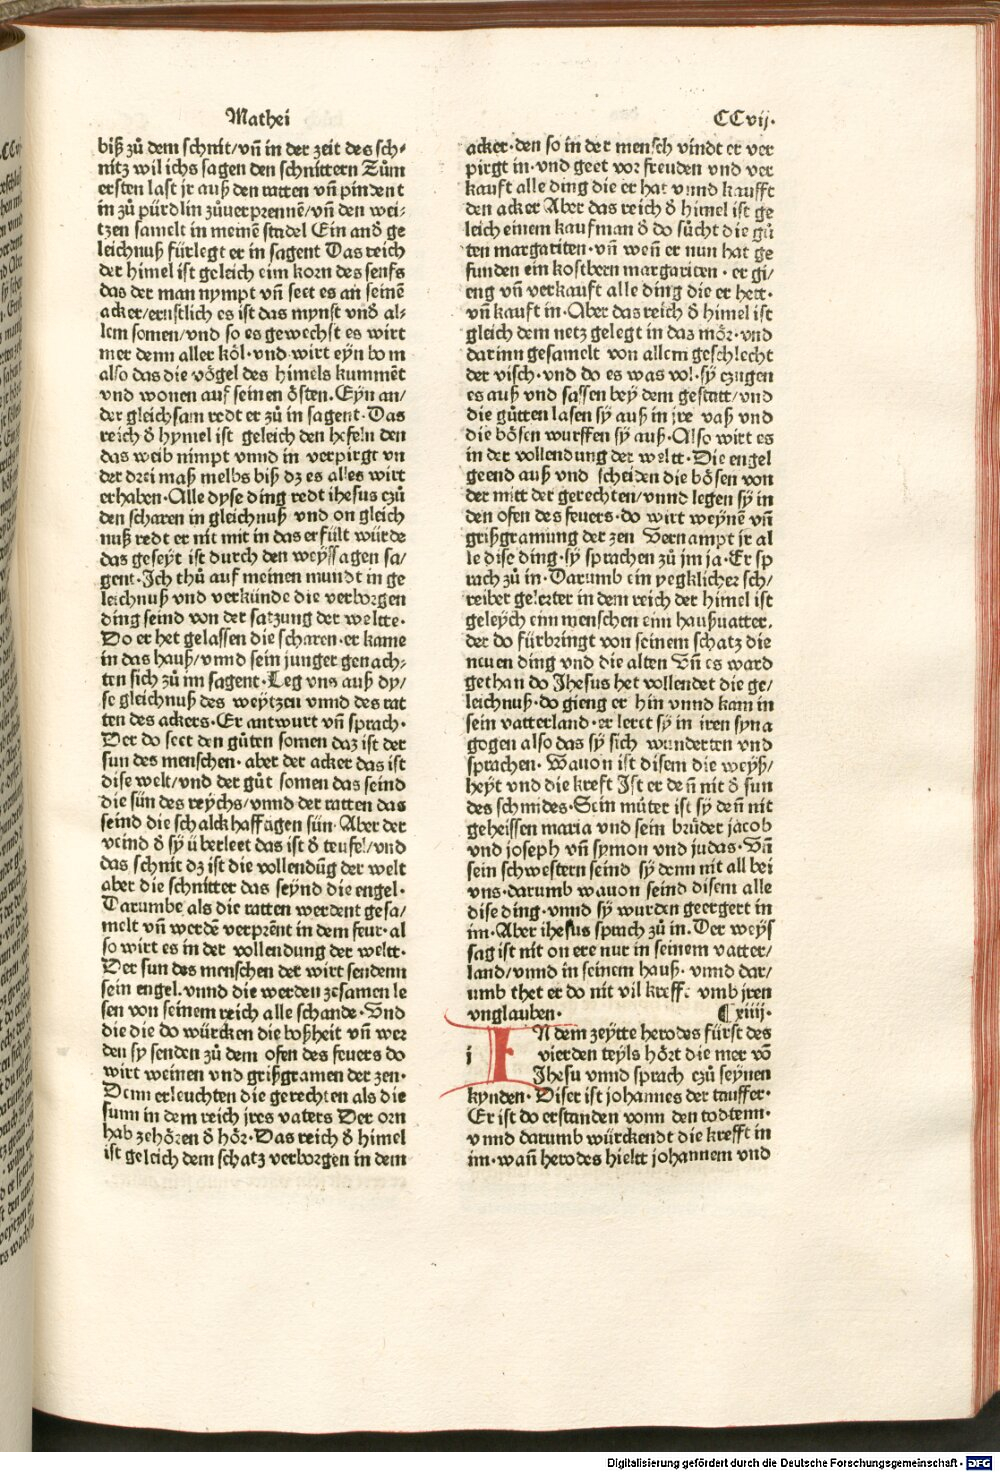 Mathei
CCvij·
biß zů dem schnit/vñ in der zeit des sch⸗
nitz wil ichs sagen den schnittern Zům
ersten last jr auß den ratten vñ pindent
in zů pürdlin zůverprennē/vñ den wei⸗
tzen samelt in meinē stadel Ein and̄ ge
leichnuß fürlegt er in sagent Das reich
der himel ist geleich eim korn des senfs
das der man nympt vñ seet es an seinē
acker/ernstlich es ist das mynst vnd̄ al⸗
lem somen/vnd so es gewechst es wirt
mer denn aller köl·vnd wirt eyn bom
also das die vögel des himels kumment
vnd wonen auf seinen östen.Eyn an/
der gleichsam redt er zů in sagent·Das
reich d̄ hymel ist geleich den hefeln den
das weib nimpt vnnd in verpirgt vn
der drei maß melbs biß dz es alles wirt
erhaben·Alle dyse ding redt ihesus czů
den scharen in gleichnuß vnd on gleich
nuß redt er nit mit in das erfült würde
das geseyt ist durch den weyssagen sa/
gent·Ich thů auf meinen mundt in ge
leichnuß vnd verkünde die verborgen
ding seind von der satzung der weltte·
Do er het gelassen die scharen·er kame
in das hauß/vnnd sein junger genach⸗
ten sich zů im sagent·Leg vns auß dy/
se gleichnuß des weytzen vnnd des rat
ten des ackers·Er antwurt vñ sprach·
Der do seet den gůten somen daz ist der
sun des menschen·aber der acker das ist
dise welt/vnd der gůt somen das seind
die sün des reychs/vnnd der ratten das
seind die schalckhafftigen sün·Aber der
veind d̄ sy überleet das ist d̄ teufel/vnd
das schnit dz ist die vollendūg der welt
aber die schnitter das seynd die engel·
Darumbe als die ratten werdent gesa/
melt vñ werdē verprēnt in dem feur·al
so wirt es in der vollendung der weltt·
Der sun des menschen der wirt sendenn
sein engel.vnnd die werden zesamen le
sen von seinem reich alle schande·Vnd
die die do würcken die boßheit vñ wer
den sy senden zů dem ofen des feuers do
wirt weinen vnd grißgramen der zen·
Denn erleuchten die gerechten als die
sunn in dem reich jres vaters Der orn
hab zehören d̄ hör·Das reich d̄ himel
ist geleich dem schatz verborgen in dem
acker·den so in der mensch vindt er ver
pirgt in·vnd geet vor freuden vnd ver
kauft alle ding die er hat vnnd kaufft
den acker Aber das reich d̄ himel ist ge
leich einem kaufman d̄ do sůcht die gů
ten margariten·vñ weñ er nun hat ge
funden ein kostbern margariten·er gi/
eng vñ verkauft alle ding die er hett·
vñ kauft in·Aber das reich d̄ himel ist
gleich dem netz gelegt in daz mör·vnd
darinn gesamelt von allem geschlecht
der visch·vnd do es was vol·sy czugen
es auß vnd sassen bey dem gestatt/vnd
die gůtten lasen sy auß in jre vaß vnd
die bösen wurffen sy auß·Also wirt es
in der vollendung der weltt·Die engel
geend auß vnd scheiden die bösen von
der mitt der gerechten/vnnd legen sy in
den ofen des feuers·do wirt weynē vñ
grißgramung der zen Vernampt jr al
le dise ding·sy sprachen zů jm ja·Er sp
rach zů in·Darumb ein yegklicher sch/
reiber gelerter in dem reich der himel ist
geleych eim menschen eim haußuatter.
der do fürbringt von seinem schatz die
neuen ding vnd die alten Vñ es ward
gethan do Jhesus het vollendet die ge/
leichnuß·do gieng er hin vnnd kam in
sein vatterland·er leret sy in iren syna
gogen also das sy sich wunderten vnd
sprachen·Wauon ist disem die weyß/
heyt vnd die kreft Ist er deñ nit d̄ sun
des schmides·Sein můter ist sy deñ nit
geheissen maria vnd sein brüder jacob
vnd joseph vñ symon vnd judas·Vñ
sein schwestern seind sy denn nit all bei
vns·darumb wauon seind disem alle
dise ding·vnnd sy wurden geergert in
im·Aber ihesus sprach zů in.Der weys
sag ist nit on ere nur in seinem vatter/
land/vnnd in seinem hauß·vnnd dar/
umb thet er do nit vil kreffte vmb jren
vnglauben· ¶xiiij·
IN dem zeytte herodes fürst des
i vierden teyls hört die mer võ
Jhesu vnnd sprach czů seynen
kynden·Diser ist johannes der tauffer·
Er ist do erstanden vonn den todtenn·
vnnd darumb würckendt die krefft in
im·wañ herodes hieltt johannem vnd
Digitalisierung gefördert durch die Deutsche Forschungsgemeinschaft · DFG